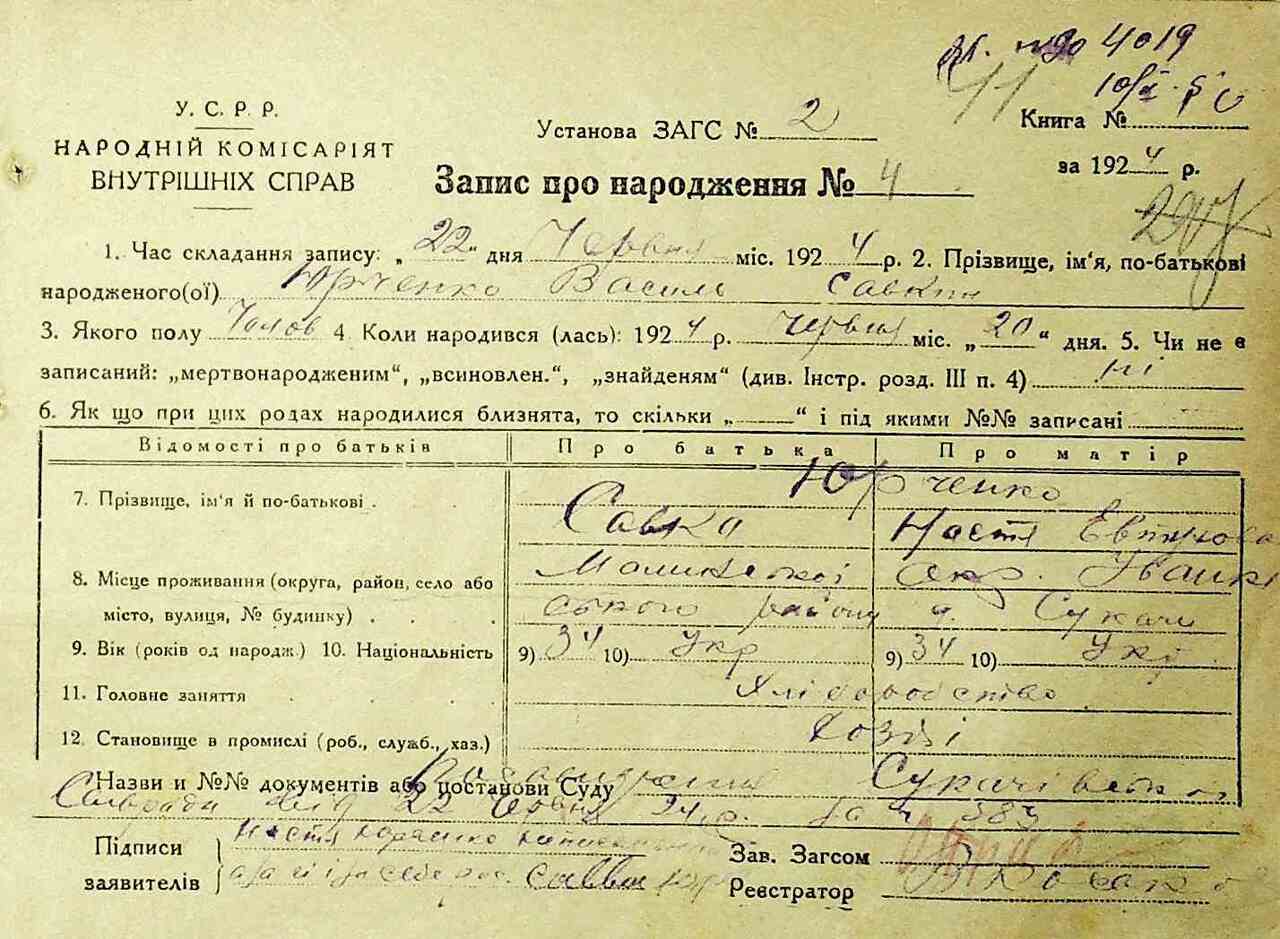 4019
У. С. Р. Р.
НАРОДНІЙ КОМІСАРІЯТ
ВНУТРІШНІХ СПРАВ
Установа ЗАГС № 2
Книга №
за 1924 р.
Запис про народження № 4
1. Час складання запису: „22“ дня Червня міс. 1924 р. 2. Прізвище, ім'я, по-батькові
народженого(ої) Юрченко Василь Савкин
3. Якого полу Чолов 4. Коли народився (лась): 1924 р. червня міс. „20“ дня. 5. Чи не є
записаний: „мертвонародженим“, „всиновлен.“, „знайденям“ (див. Інстр. розд. III п. 4) ні
6. Як що при цих родах народилися близнята, то скільки „ “ і під якими №№ записані
Відомості про батьків Про батька Про матір
7. Прізвище, ім'я й по-батькові . Юрченко
Савка Настя
8. Місце проживання (округа, район, село або Малинської окр.
місто, вулиця, № будинку) . . . району Сукачи
9. Вік (років од народж.) 10. Національність 9) 34 10) Укр 9) 34 10) Укр
11. Головне заняття Хліборобство
12. Становище в промислі (роб., служб., хаз.)
Назви и №№ документів або постанови Суду
Сільради від 22 24 р. за № 383
Підписи
заявителів
Настя
Зав. Загсом
Реєстратор